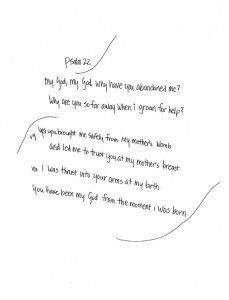 psalm 22
my God, my God why have you abandoned me?
Why are you so far away when i groan for help?
v9 Yet you brought me safely from my mother's womb
and led me to trust you at my mother's breast.
v10 I was thrust into your arms at my birth.
You have been my God from the moment i was born.